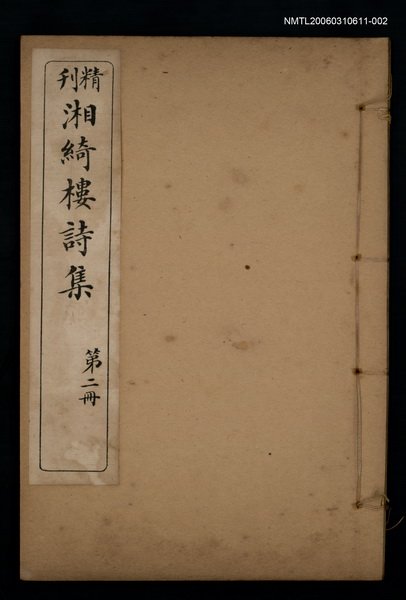 NMTL20060310611-002
精刊
湘綺樓詩集
第二冊